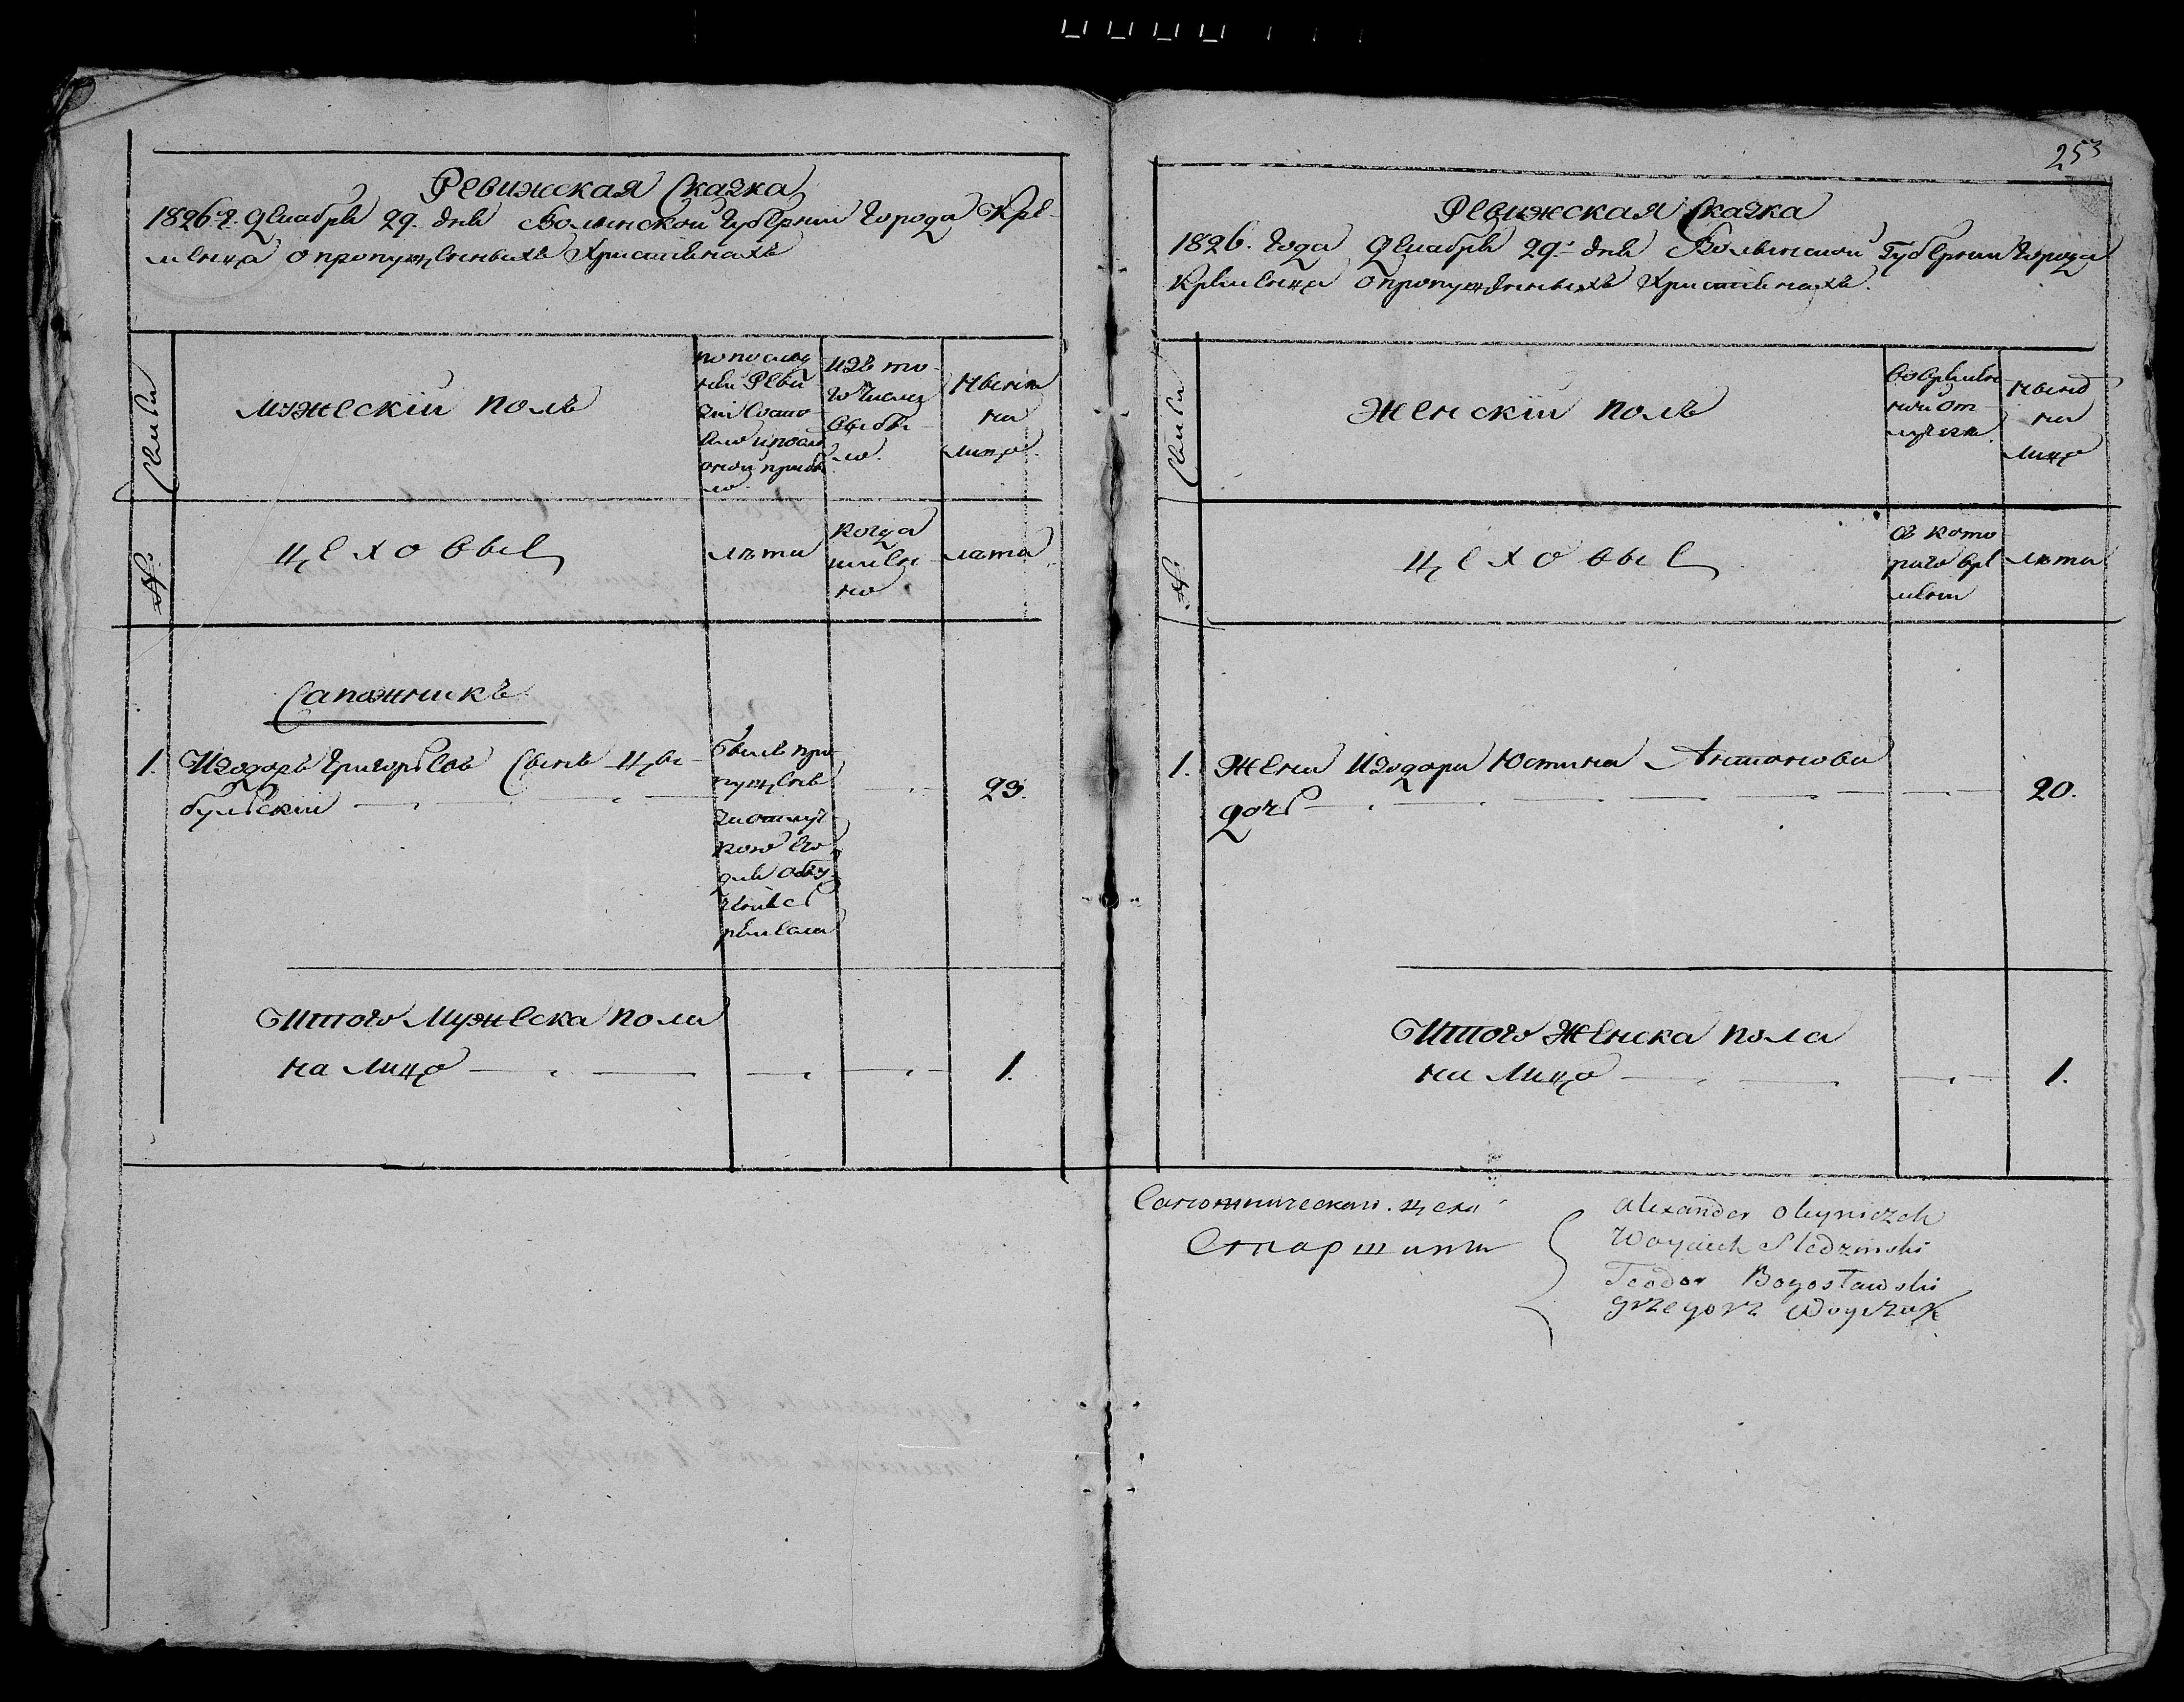 Ревижская Сказка
1826 г. Декабря 29. дня Волынской Губернии города Кре-
менца о пропущенныхъ Християнахъ
Семьи
Мужескій полъ
по послед
ней Реви
зіи состо
яло и после
оной прибы
ло.
изъ то
го числа
выбы
ло.
Ныне
на
лицо
№.
Цеховые
лета
когда
имен
но
лета
Сапожникъ
1. Изодоръ Григорьевъ Сынъ Цы-
бульскій
былъ про
пущенъ
за отлуч
кою его
для обу
ченія с
ремесла
23.
Итого Мужеска пола
на лицо 1.
253
Ревижская Сказка
1826. Года Декабря 29. дня Волынской Губернии города
Кременца о пропущенныхъ Християнахъ.
Семьи
Женскій полъ
во времен
ной от
лучке.
Ныне
на
лицо
№.
Цеховые
съ кото
раго вре
мени
лета
1. Жена Изодора Юстина Антонова
дочь 20.
Итого Женска пола
на лицо 1.
Сапожническаго цеха
Старшини
Alexander Oleyniczek
Woyciech Sledzinski
Teodor Bogosławski
Grzegorz Woyczuk